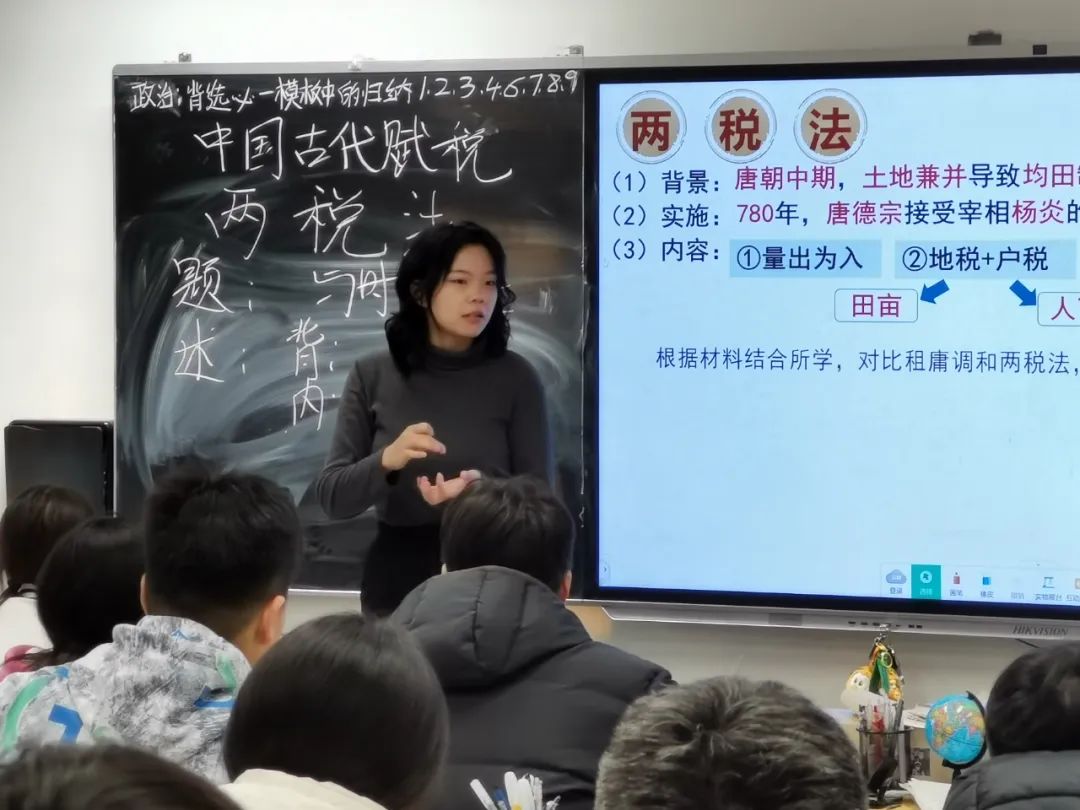 政治:背选必一模板中的归纳1.2.3.4.5.6.7.8.9
中国古代赋税
两税法
题: 与时
述: 背:
内:
两税法
(1) 背景: 唐朝中期，土地兼并导致均田制
(2) 实施: 780年，唐德宗接受宰相杨炎的
(3) 内容: ①量出为入 ②地税+户税
田亩 人
根据材料结合所学，对比租庸调和两税法，
登录 选择 画笔 橡皮 实物展台
HIKVISION